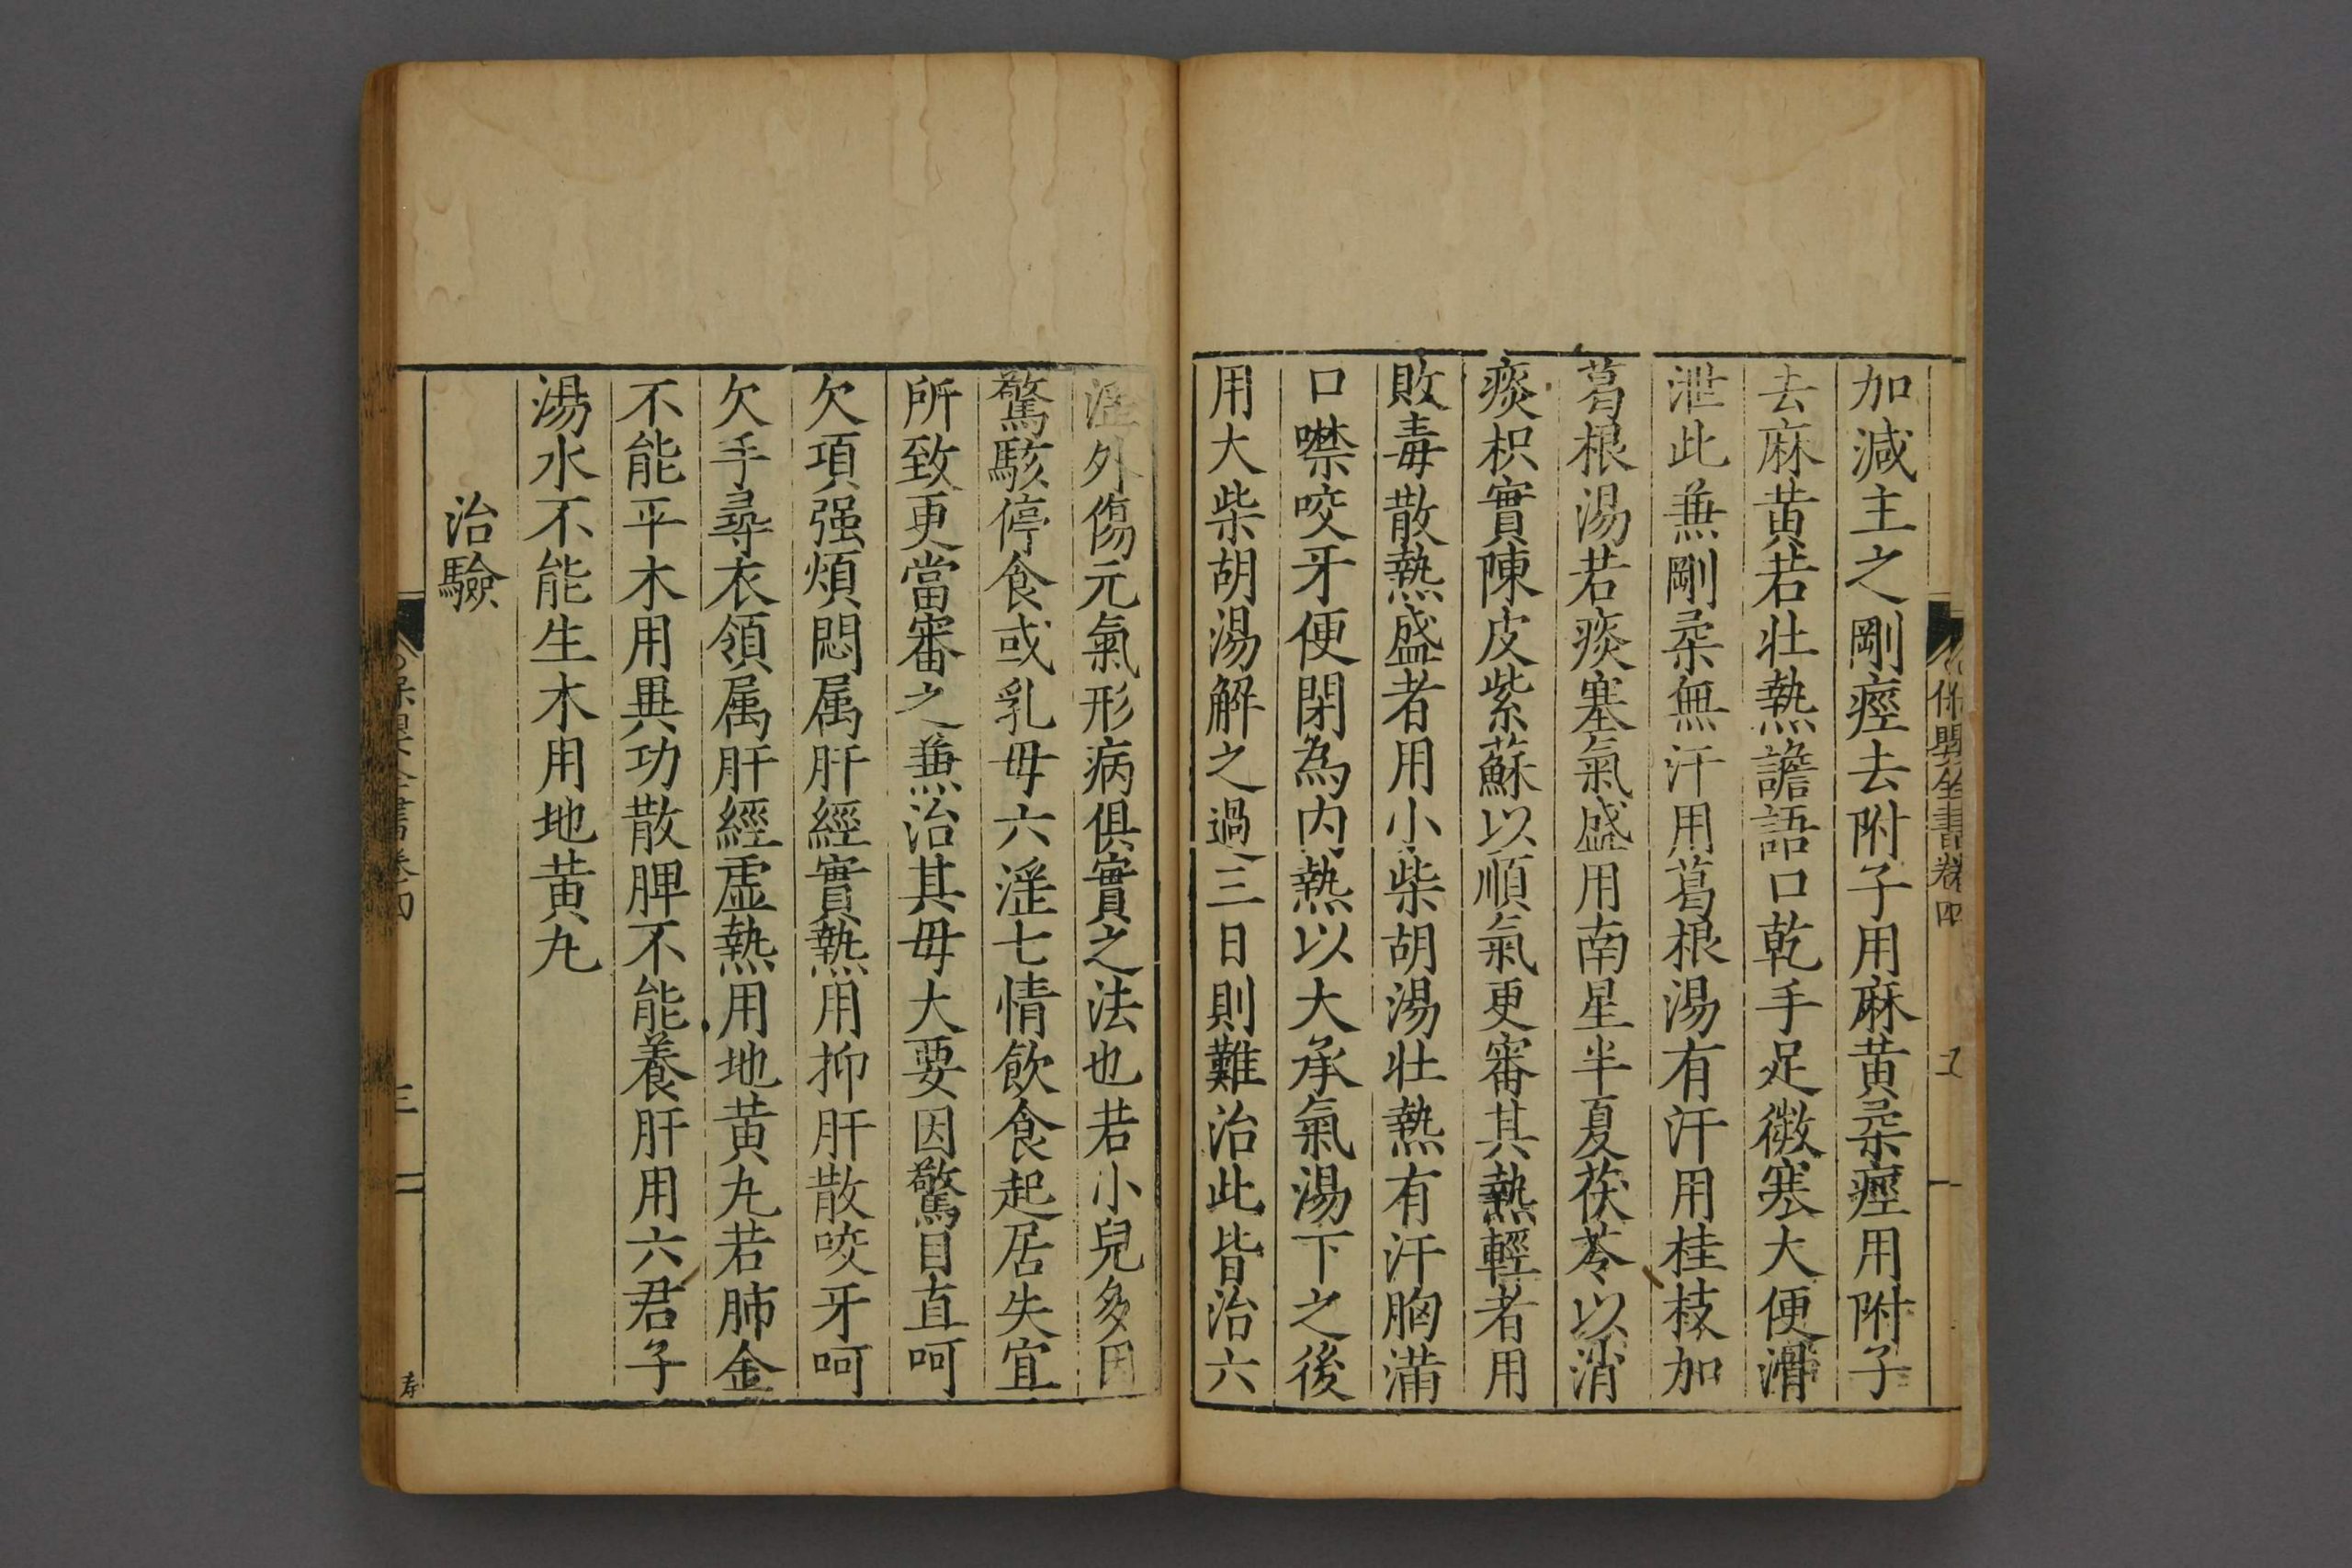 加減主之剛痙去附子用麻黄柔痙用附子
去麻黄若壮熱譫語口乾手足微寒大便滑
泄此兼剛柔無汗用葛根湯有汗用桂枝加
葛根湯若痰塞氣盛用南星半夏茯苓以消
痰枳實陳皮紫蘇以順氣更審其熱輕者用
敗毒散熱盛者用小柴胡湯壮熱有汗胸滿
口噤咬牙便閉為内熱以大承氣湯下之後
用大柴胡湯解之過三日則難治此皆治六
淫外傷元氣形病俱實之法也若小兒多因
驚駭停食或乳母六淫七情飲食起居失宜
所致更當審之兼治其母大要因驚目直呵
欠項强煩悶属肝經實熱用抑肝散咬牙呵
欠手尋衣領属肝經虛熱用地黄九若肺金
不能平木用異功散脾不能養肝用六君子
湯水不能生木用地黄九
治驗
保嬰全書卷四
三